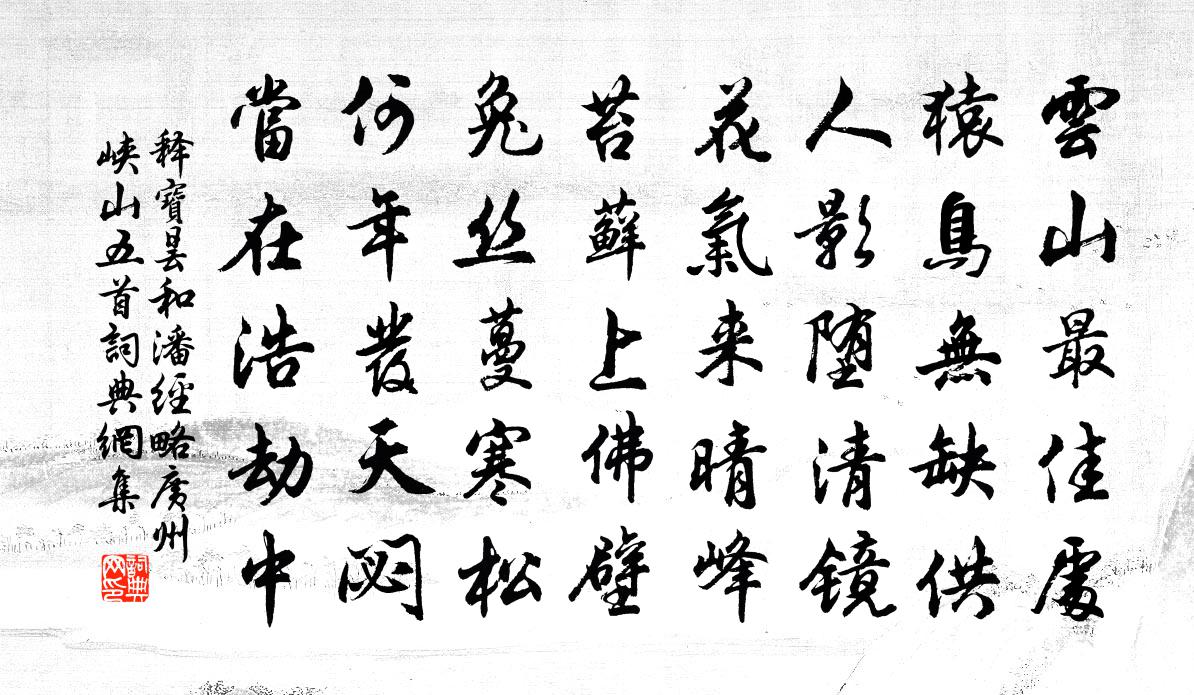 雲山最佳處
猿鳥無缺供
人影堕清镜
花氣来晴峰
苔蘚上佛壁
兔丝蔓寒松
何年發天閟
當在浩劫中
释寶曇和潘經略廣州
峽山五首詞典網集
詞典
网印